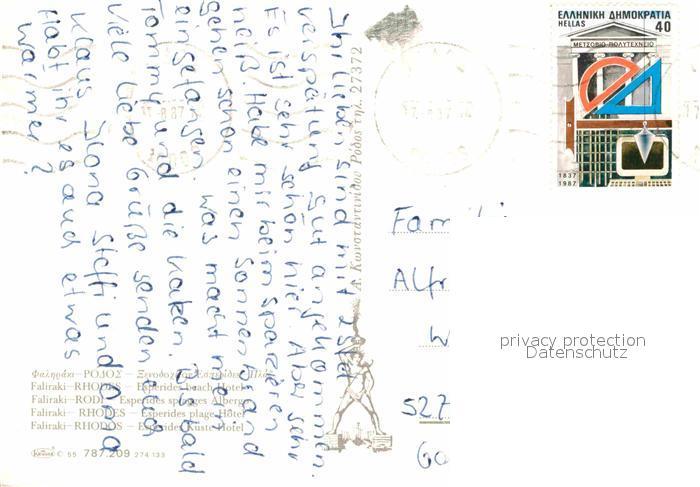 Ihr lieben sind mit 1 Std
verspätung gut angekommen.
Es ist sehr schön hier. Aber sehr
heiß Habe mir beim spazieren
gehen schon einen Sonnenbrand
eingefangen was macht mein
Tommy und die Katzen. Bis bald
Viele liebe Grüße senden euch
Klaus Ilona Steffi und Oma
Habt ihr es auch etwas
warmer?
Δ. Κωνσταντινίδου Ρόδος Τηλ. 27372
ΕΛΛΗΝΙΚΗ ΔΗΜΟΚΡΑΤΙΑ
HELLAS 40
ΜΕΤΣΟΒΙΟ ΠΟΛΥΤΕΧΝΕΙΟ
1837
1987
Fam
Alfr
W
527
Go
privacy protection
Datenschutz
Φαληράκι - ΡΟΔΟΣ - Ξενοδοχείον Εσπερίδες
Faliraki - RHODES - Esperides beach Hotel
Faliraki - RODI - Esperides spiagges Albergo
Faliraki - RHODES - Esperides plage Hôtel
Faliraki - RHODOS - Esperides Küste Hotel
© 55 787.209 274 133